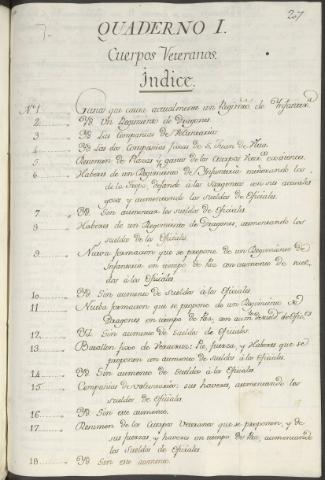 207
QUADERNO I.
Cuerpos Veteranos.
Índice.
N.º 1 Gasto que causa actualmente un Regim.to de Infanter.a
2 Yd. Un Regimiento de Dragones.
3 Yd. Las Compañias de Voluntarios
4 Yd. Las dos Compañias fixas de S. Juan de Ulua.
5 Resumen de Plazas y gastos de los Cuerpos Veter.os existentes.
6 Haberes de un Regimiento de Ynfanteria
de la Tropa, dejando á los Sargentos con sus actuales
goces y aumentando los sueldos de Oficiales.
7 Yd. Sin aumentar los sueldos de Oficiales
8 Haberes de un Regimiento de Dragones, aumentando los
sueldos de los Oficiales
9 Nueva formacion que se propone de un Regimiento de
Infanteria en tiempo de Paz con aumento de suel-
dos á los Oficiales
10 Yd. Sin aumento de sueldos á los Oficiales
11 Nueba formacion que se propone de un Regimiento de
Dragones en tiempo de Paz, con aum.to de sueld. de Ofic.s
12 Yd. Sin aumento de sueldo de Oficiales
13 Batallon fixo de Veracruz: Pie, fuerza, y Haberes que se
proponen con aumento de sueldos á los Oficiales.
14 Yd. Sin aumento de sueldos á los Oficiales
15 Compañias de voluntarios: sus haveres, aumentando los
sueldos de Oficiales
16 Yd. Sin este aumento.
17 Resumen de los Cuerpos Veteranos que se proponen, y de
sus fuerzas y haveres en tiempo de Paz, aumentando
los Sueldos de Oficiales
18 Yd. Sin este aumento.